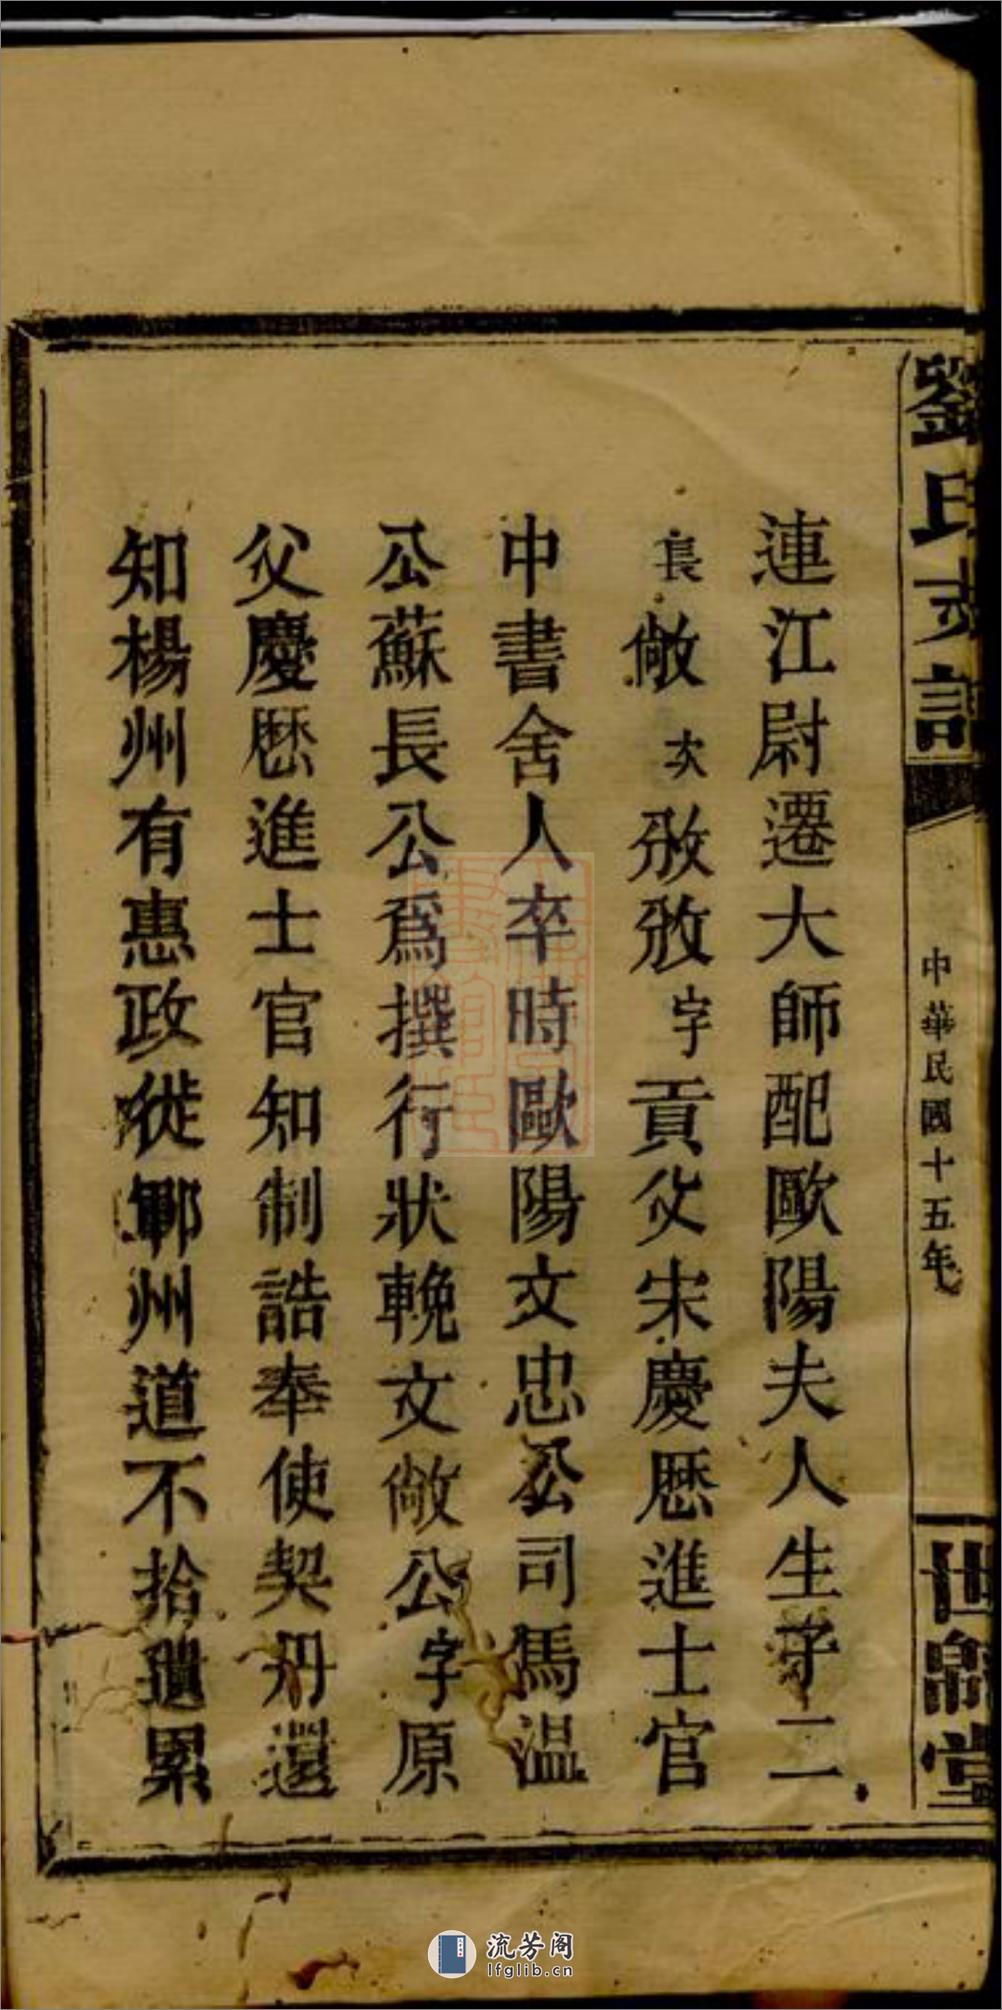 劉氏支譜
中華民國十五年
世彩堂
連江尉遷大師配歐陽夫人生子二
長敞次攽攽字貢父宋慶厯進士官
中書舍人卒時歐陽文忠公司馬温
公蘇長公爲撰行狀輓文敞公字原
父慶厯進士官知制誥奉使契丹還
知楊州有惠政徙鄆州道不拾遺累
流芳阁
lfglib.cn